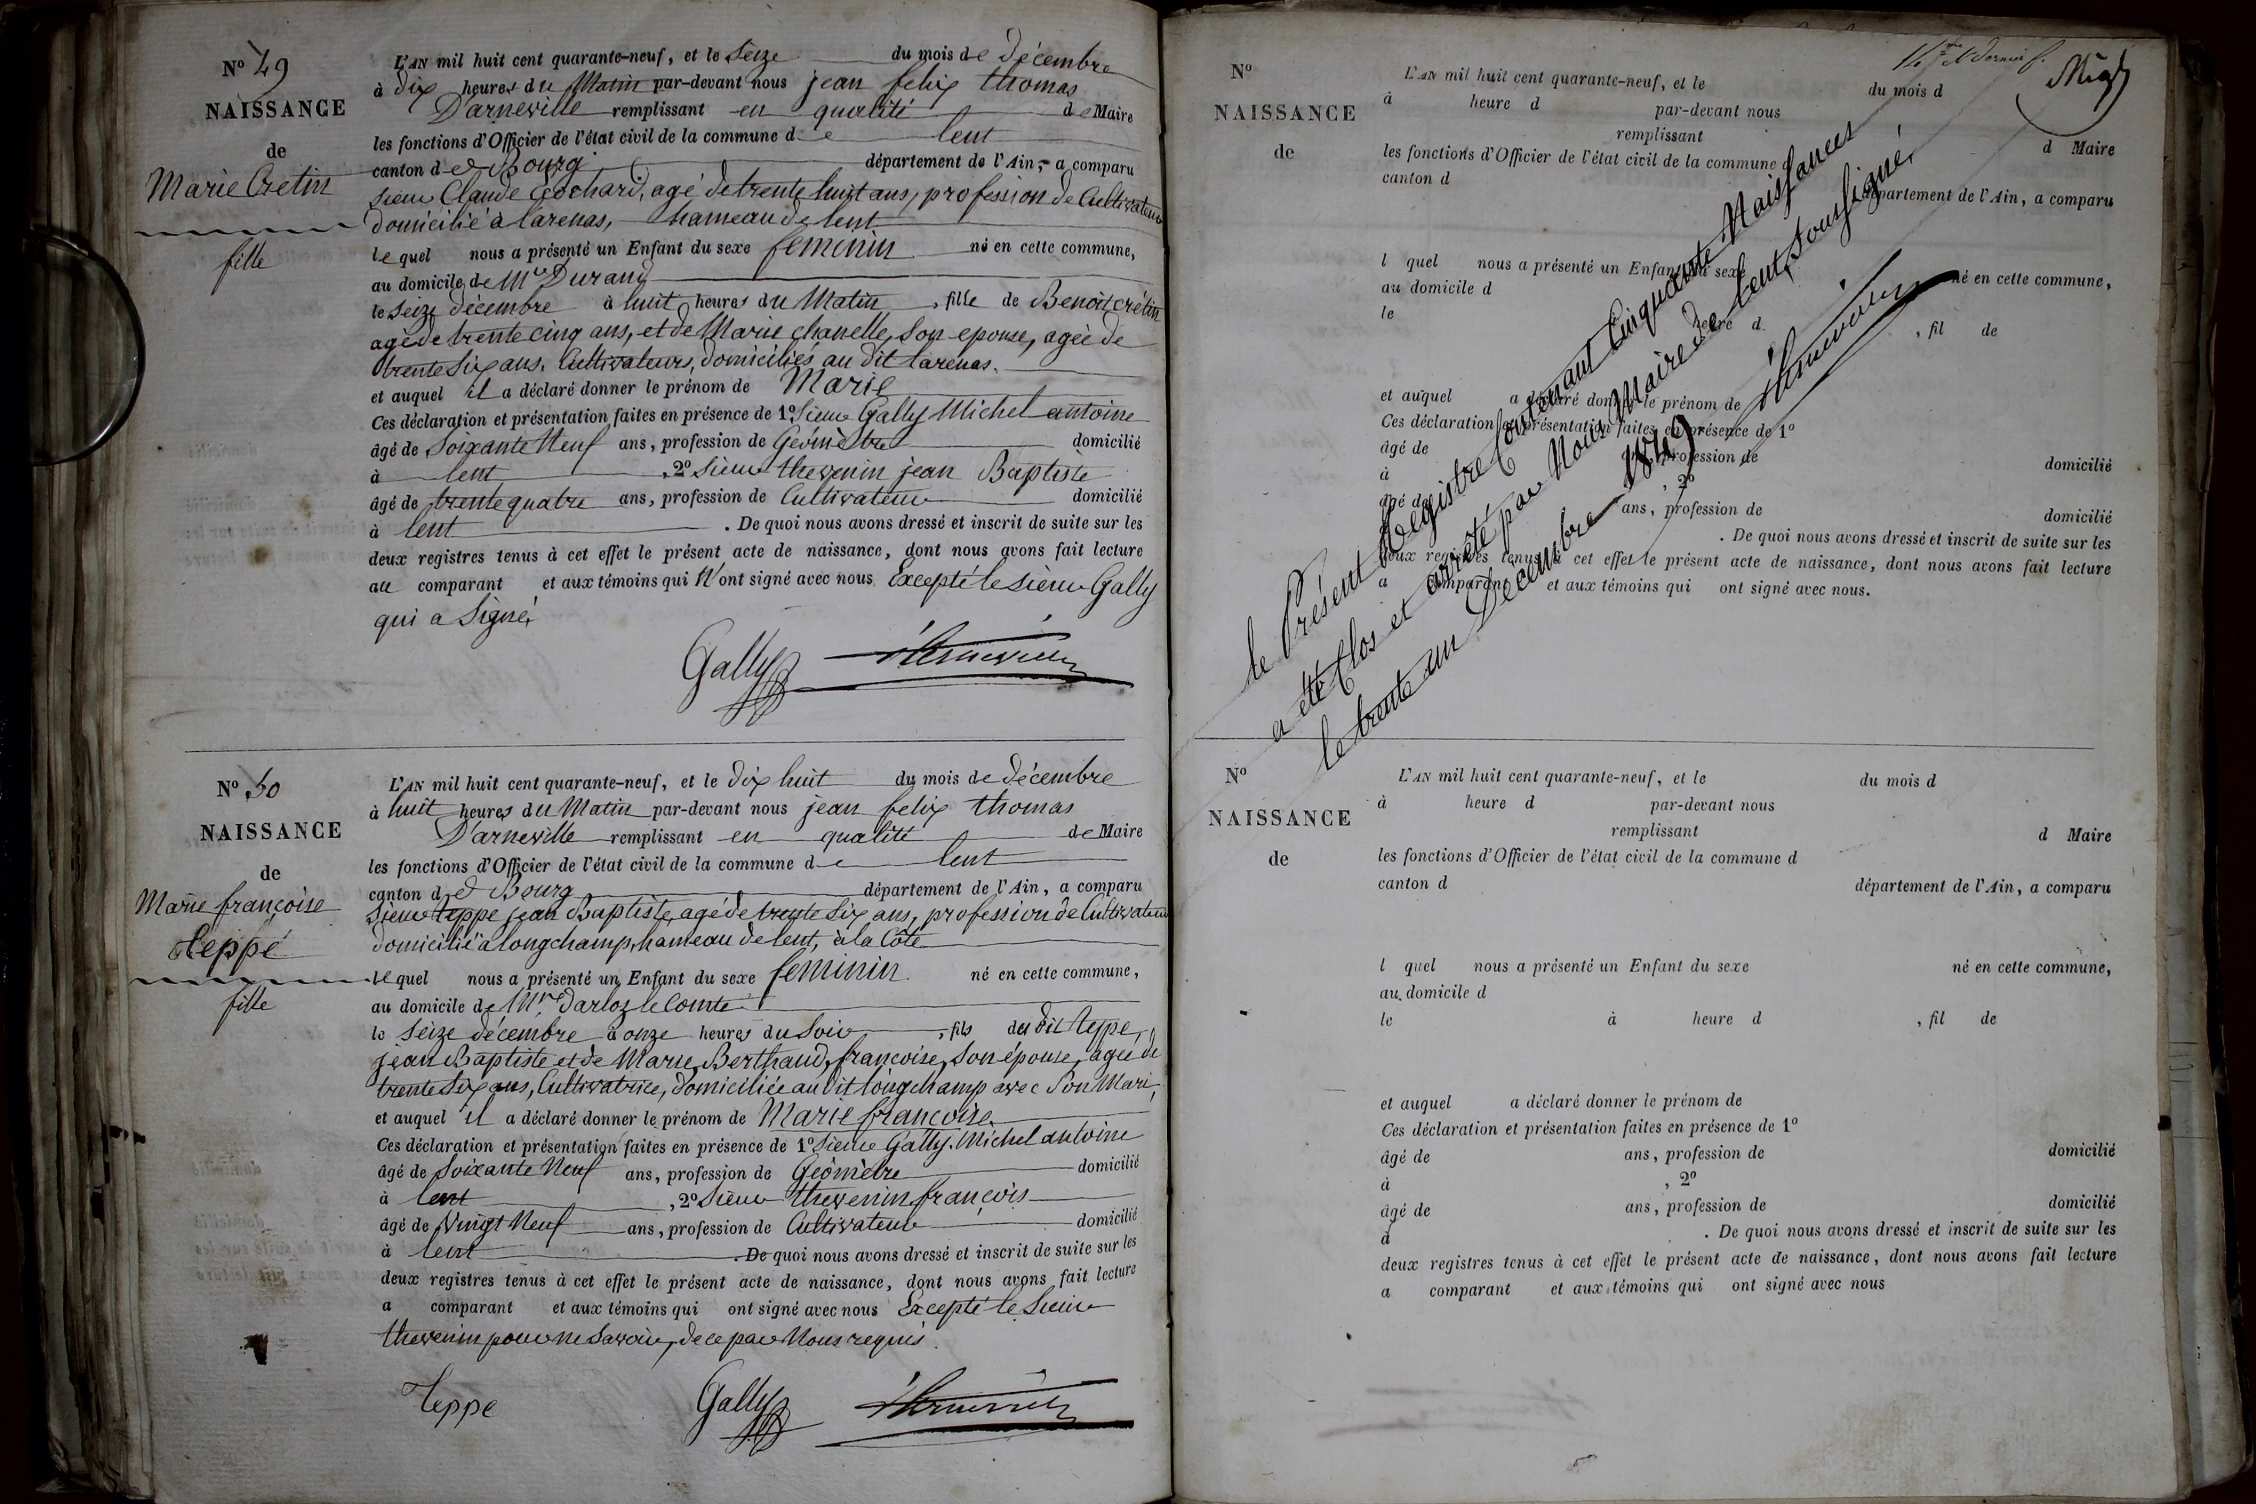 N° 49
NAISSANCE
de
Marie Cretin
fille
L'AN mil huit cent quarante-neuf, et le Seize du mois de décembre
à dix heures du Matin par-devant nous jean felix thomas
D'arneville remplissant en qualité de Maire
les fonctions d'Officier de l'état civil de la commune de lent
canton de Bourg département de l'Ain, a comparu
Sieur Claude Cochard, agé de trente huit ans, profession de Cultivateur
domicilié à larenas, hameau de lent
lequel nous a présenté un Enfant du sexe feminin né en cette commune,
au domicile de Mr Durand
le Seize décembre à huit heures du Matin, fille de Benoit crétin
agé de trente cinq ans, et de Marie chanelle, son epouse, agée de
trente Six ans. Cultivateurs, domiciliés au dit larenas.
et auquel il a déclaré donner le prénom de Marie
Ces déclaration et présentation faites en présence de 1° Sieur Gally Michel antoine
âgé de Soixante Neuf ans, profession de Géomètre domicilié
à lent, 2° Sieur thevenin jean Baptiste
âgé de trente quatre ans, profession de Cultivateur domicilié
à lent. De quoi nous avons dressé et inscrit de suite sur les
deux registres tenus à cet effet le présent acte de naissance, dont nous avons fait lecture
au comparant et aux témoins qui N'ont signé avec nous Excepté le Sieur Gally
qui a Signé.
Gally
N° 50
NAISSANCE
de
Marie françoise
teppé
fille
L'AN mil huit cent quarante-neuf, et le dix huit du mois de décembre
à huit heures du Matin par-devant nous jean felix thomas
D'arneville remplissant en qualité de Maire
les fonctions d'Officier de l'état civil de la commune de lent
canton de Bourg département de l'Ain, a comparu
Sieur teppe jean Baptiste, agé de trente Six ans, profession de Cultivateur
domicilié à longchamp, hameau de lent, à la Côte
lequel nous a présenté un Enfant du sexe féminin né en cette commune,
au domicile de Mr. Darloz le Comte
le Seize décembre à onze heures du Soir, fils du dit teppe,
jean Baptiste et de Marie Berthaud, françoise, Son épouse, agée de
trente Six ans, Cultivatrice, domiciliée au dit longchamp avec Son Mari,
et auquel il a déclaré donner le prénom de Marie françoise.
Ces déclaration et présentation faites en présence de 1° Sieur Gally. Michel antoine
âgé de Soixante Neuf ans, profession de Géomètre domicilié
à lent, 2° Sieur thevenin françois
âgé de Vingt Neuf ans, profession de Cultivateur domicilié
à lent. De quoi nous avons dressé et inscrit de suite sur les
deux registres tenus à cet effet le présent acte de naissance, dont nous avons fait lecture
a comparant et aux témoins qui ont signé avec nous Excepté le Sieur
thevenin pour ne Savoir, de ce par Nous requis.
Teppe Gally
N°
NAISSANCE
de
L'AN mil huit cent quarante-neuf, et le du mois d
à heure d par-devant nous
remplissant d Maire
les fonctions d'Officier de l'état civil de la commune d
canton d département de l'Ain, a comparu
l quel nous a présenté un Enfant du sexe né en cette commune,
au domicile d
le heure d, fil de
et auquel a déclaré donner le prénom de
Ces déclaration et présentation faites en présence de 1°
âgé de profession de domicilié
à, 2°
âgé de ans, profession de domicilié
. De quoi nous avons dressé et inscrit de suite sur les
deux registres tenus à cet effet le présent acte de naissance, dont nous avons fait lecture
a comparant et aux témoins qui ont signé avec nous.
le Présent Registre Contenant Cinquante Naissances
a été Clos et arrêté par Nous Maire de lent, Soussigné,
le trente un Décembre 1849
N°
NAISSANCE
de
L'AN mil huit cent quarante-neuf, et le du mois d
à heure d par-devant nous
remplissant d Maire
les fonctions d'Officier de l'état civil de la commune d
canton d département de l'Ain, a comparu
l quel nous a présenté un Enfant du sexe né en cette commune,
au domicile d
le à heure d, fil de
et auquel a déclaré donner le prénom de
Ces déclaration et présentation faites en présence de 1°
âgé de ans, profession de domicilié
à, 2°
âgé de ans, profession de domicilié
à. De quoi nous avons dressé et inscrit de suite sur les
deux registres tenus à cet effet le présent acte de naissance, dont nous avons fait lecture
a comparant et aux témoins qui ont signé avec nous